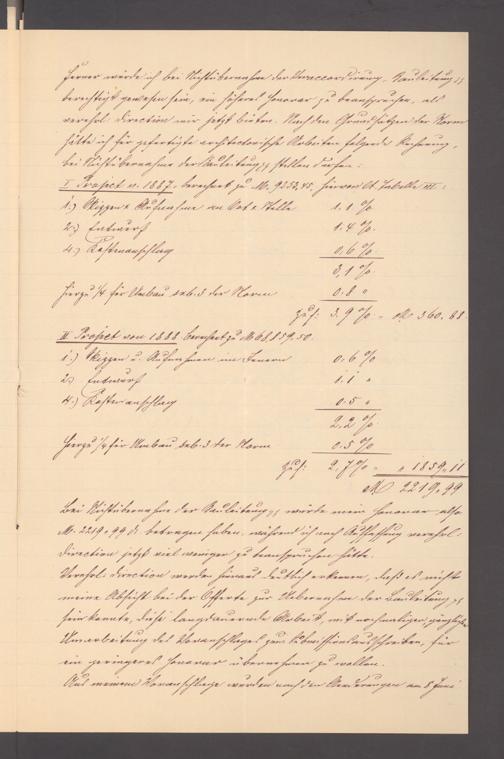 Ferner würde ich bei Nichtübernahme der Veraccordirung, Bauleitung
berechtigt gewesen sein, ein höheres Honorar zu beanspruchen, als
verehrl. Direction mir jetzt bieten. Nach den Grundsätzen der Norm
hätte ich für gefertigte architectonische Arbeiten folgende Rechnung,
bei Nichtübernahme der Bauleitung stellen dürfen:
I Project v. 1887. berechnet zu M. 9252,45. hiervon lt. Tabelle III:
1.) Skizzen & Aufnahme an Ort & Stelle 1.1 %
2.) Entwurf 1.4 %
4.) Kostenanschlag 0,6 %
3,1 %
Hierzu 1/4 für Umbau der Norm 0.8 "
zus: 3.9 % = M. 360.88
II Project von 1888 berechnet zu M 68859.50.
1.) Skizzen u. Aufnahmen im Innern 0.6 %
2.) Entwurf 1.1 "
4.) Kostenanschlag 0.5 "
2,2 %
Hierzu 1/4 für Umbau der Norm 0.5 %
zus: 2,7 % = " 1859,11
M 2219,99
Bei Nichtübernahme der Bauleitung würde mein Honorar also
M. 2219,99 betragen haben, während ich nach Auffassung verehrl.
Direction jetzt viel weniger zu beanspruchen hätte.
Verehrl. Direction werden hieraus deutlich erkennen, daß es nicht
meine Absicht bei der Offerte zur Uebernahme der Bauleitung
sein konnte, diese langdauernde Arbeit, mit nochmaliger gänzlicher
Umarbeitung des Voranschlages zum Submissionsausschreiben, für
ein geringeres Honorar übernehmen zu wollen.
Aus meinem Voranschlage wurden nach den Aenderungen am 8 Juni